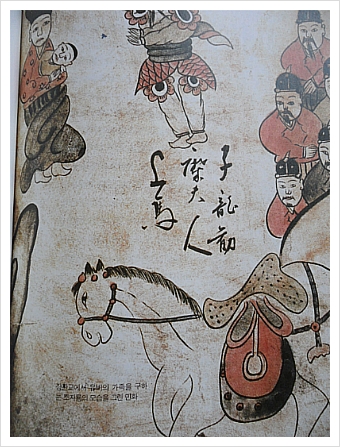 子龍勸
糜夫人
上馬
장판교에서 유비의 가족을 구하
는 조자룡의 모습을 그린 민화